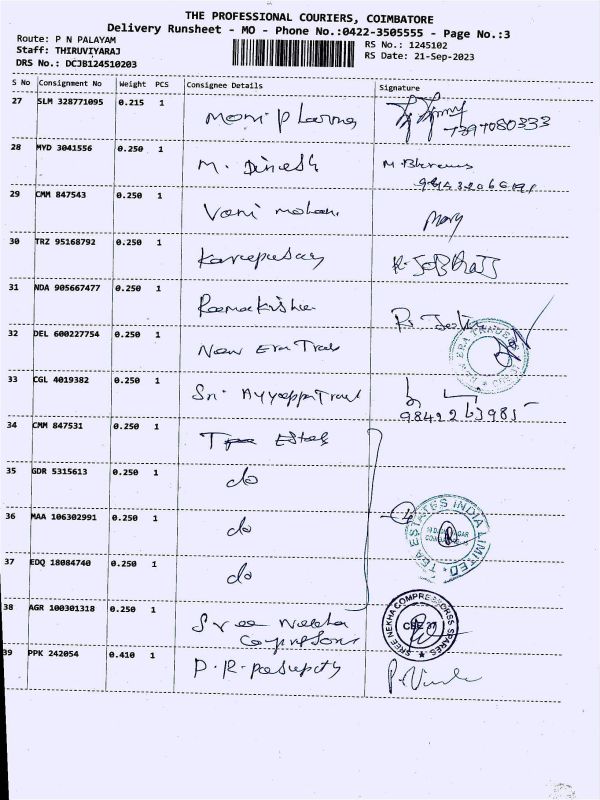 THE PROFESSIONAL COURIERS, COIMBATORE
Delivery Runsheet - MO - Phone No.:0422-3505555 - Page No.:3
Route: P N PALAYAM
Staff: THIRUVIYARAJ
DRS No.: DCJB124510203
RS No.: 1245102
RS Date: 21-Sep-2023
S No Consignment No Weight PCS Consignee Details Signature
27 SLM 328771095 0.215 1
28 MYD 3041556 0.250 1 M. Dinesh
29 CMM 847543 0.250 1 Vani mohan Mary
30 TRZ 95168792 0.250 1
31 NDA 905667477 0.250 1 Ramakrishna
32 DEL 600227754 0.250 1 New Era Trad
NEW ERA TRADERS
33 CGL 4019382 0.250 1 Sri Ayyappa Trad
34 CMM 847531 0.250 1 Tea Estates
35 GDR 5315613 0.250 1 do
36 MAA 106302991 0.250 1 do
TEA ESTATES INDIA LIMITED
37 EDQ 18084740 0.250 1 do
38 AGR 100301318 0.250 1 Sree Nekha
Compressors
SREE NEKHA COMPRESSORSS SPARES
CBE 37
39 PPK 242054 0.410 1